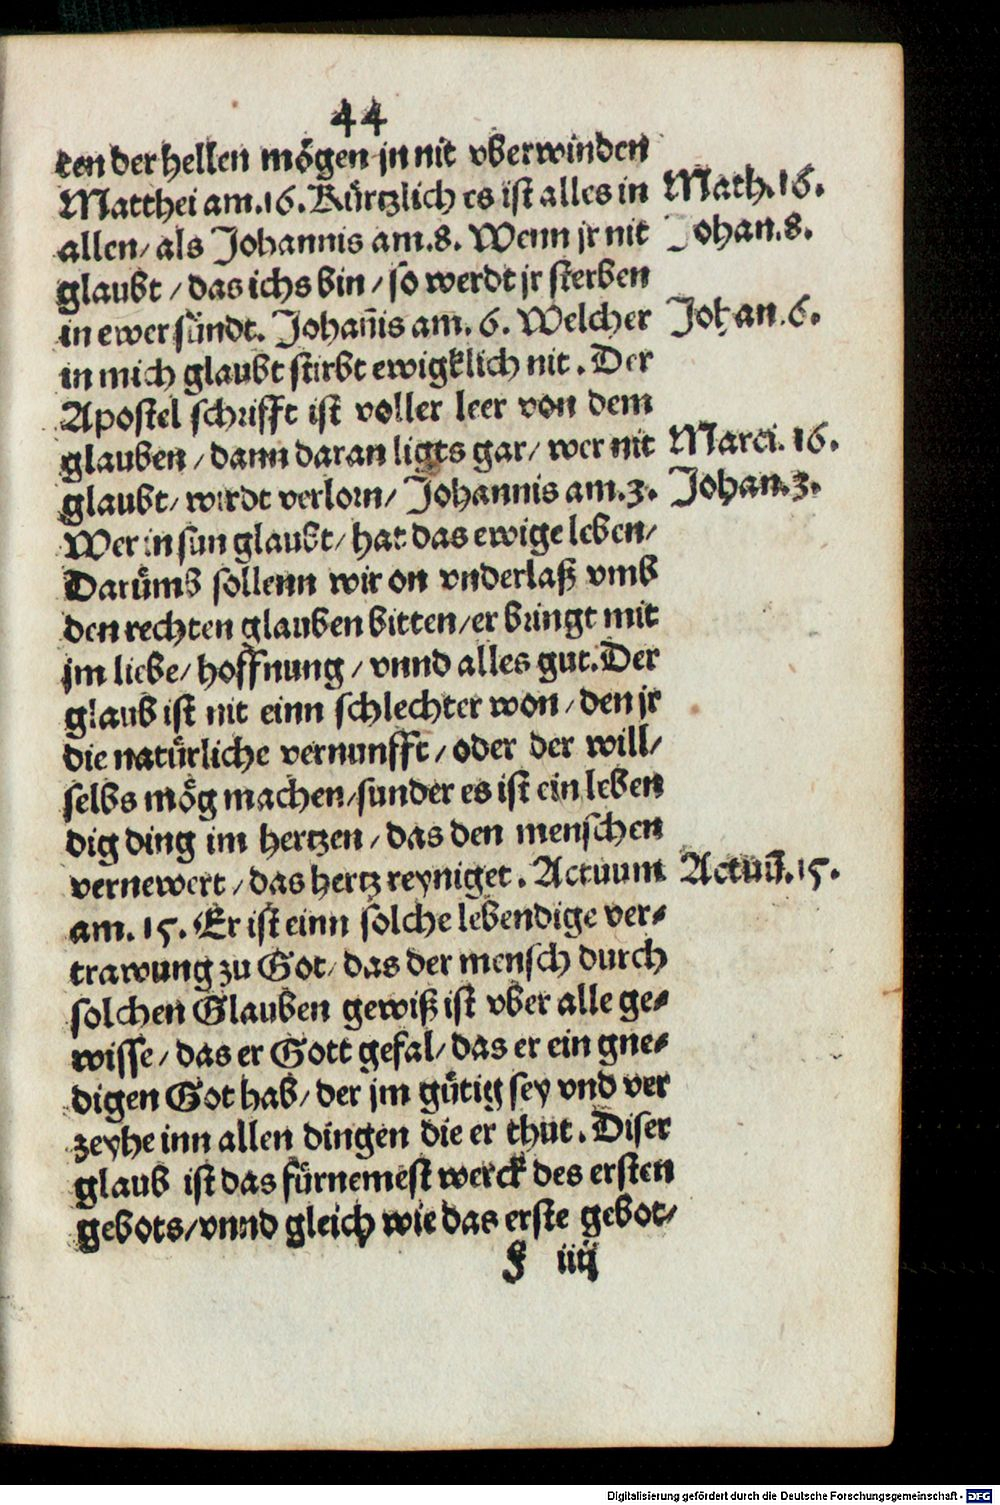 44
ten der hellen mögen jn nit vberwinden
Matthei am.16. Kürtzlich es ist alles in
Math.16.
allen/ als Johannis am.8. Wenn jr nit
Johan.8.
glaubt / das ichs bin / so werdt jr sterben
in ewer sündt. Johañis am. 6. Welcher
Johan.6.
in mich glaubt stirbt ewigklich nit. Der
Apostel schrifft ist voller leer von dem
glauben / dann daran ligts gar/ wer nit
Marci. 16.
glaubt/ wirdt verlorn/ Johannis am.3.
Johan.3.
Wer in sun glaubt/ hat das ewige leben/
Darümb sollenn wir on vnderlaß vmb
den rechten glauben bitten/er bringt mit
jm liebe/ hoffnung / vnnd alles gut. Der
glaub ist nit einn schlechter won / den jr
die natürliche vernunfft / oder der will/
selbs mög machen/sunder es ist ein leben
dig ding im hertzen / das den menschen
vernewert / das hertz reyniget. Actuum
Actuũ.15.
am. 15. Er ist einn solche lebendige ver-
trawung zu Got/ das der mensch durch
solchen Glauben gewiß ist vber alle ge-
wisse / das er Gott gefal/ das er ein gne-
digen Got hab/ der jm gütig sey vnd ver
zeyhe inn allen dingen die er thut. Diser
glaub ist das fürnemest werck des ersten
gebots/vnnd gleich wie das erste gebot/
F iiij
Digitalisierung gefördert durch die Deutsche Forschungsgemeinschaft - DFG